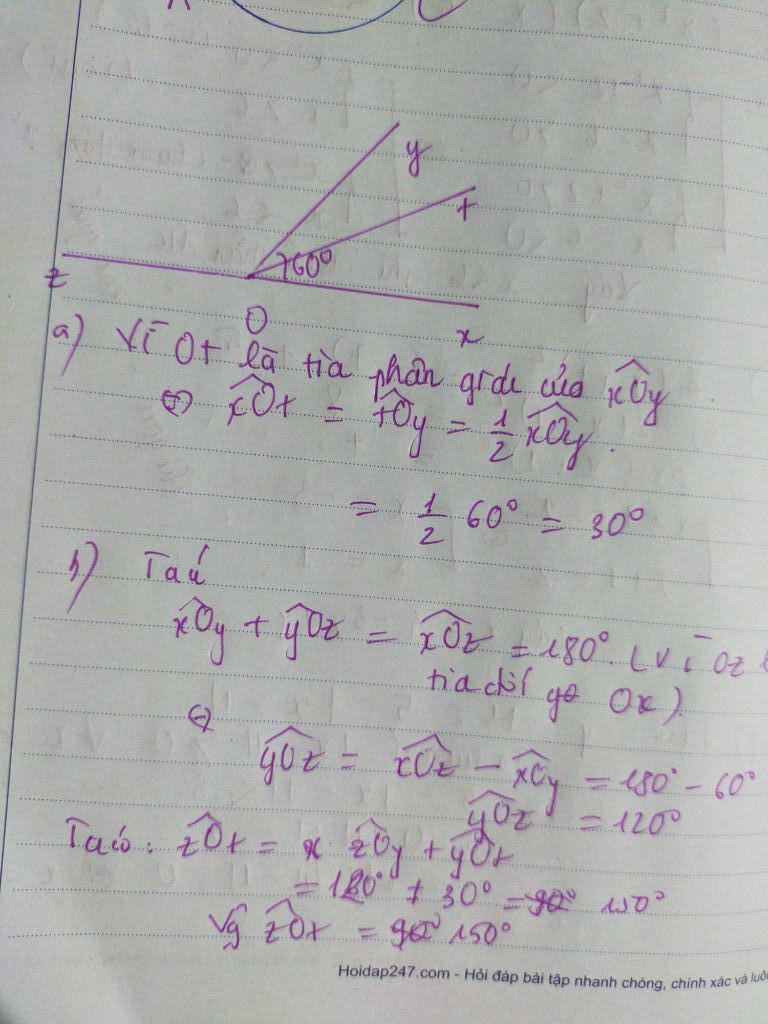 y
t
60°
z
O
x
a) Vì Ot là tia phân giác của xOy
⇔ xOt = tOy = 1/2 xOy.
= 1/2 60° = 30°
b) Ta có
xOy + yOz = xOz = 180°. (vì Oz
tia đối Ox)
⇔
yOz = xOz - xOy = 180° - 60°
yOz = 120°
Ta có: zOt = zOy + yOt
= 120° + 30° = 150°
Vậy zOt = 150°
Hoidap247.com - Hỏi đáp bài tập nhanh chóng, chính xác và